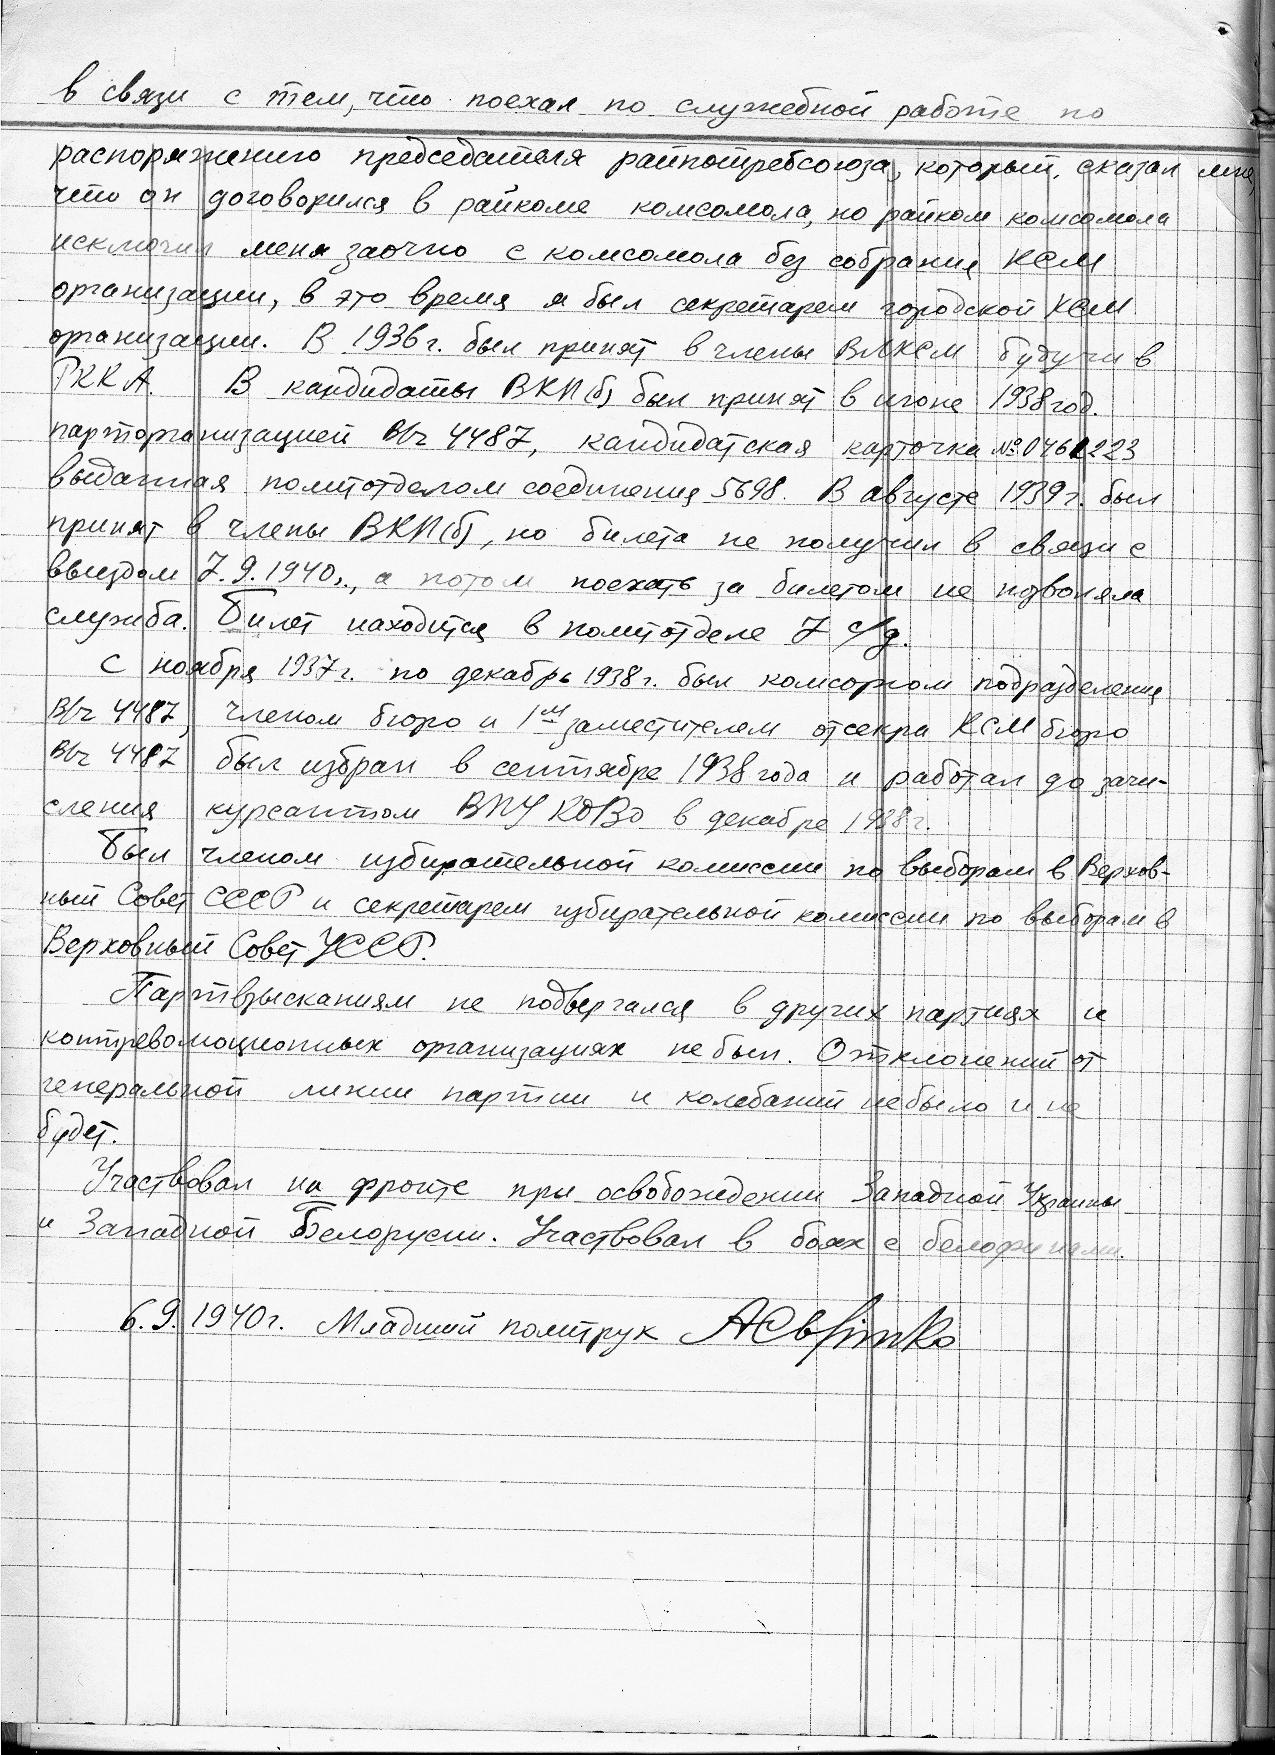 в связи с тем, что поехал по служебной работе по
распоряжению председателя райпотребсоюза, который, сказал мне,
что он договорился в райкоме комсомола, но райком комсомола
исключил меня заочно с комсомола без собрания КСМ
организации, в это время я был секретарем городской КСМ
организации. В 1936 г. был принят в члены ВЛКСМ будучи в
РККА. В кандидаты ВКП(б) был принят в июне 1938 год.
парторганизацией В/ч 4487, кандидатская карточка №
выданная политотделом соединения 5698. В августе 1939 г. был
принят в члены ВКП(б), но билета не получил в связи с
выездом 7.9.1940 г., а потом поехать за билетом не позволяла
служба. Билет находится в политотделе 7 с/д.
С ноября 1937 г. по декабрь 1938 г. был комсоргом подразделения
В/ч 4487, членом бюро и 1м заместителем отсекра КСМ бюро
В/ч 4487 был избран в сентябре 1938 года и работал до зачи-
сления курсантом ВПУ КОВО в декабре 1938 г.
Был членом избирательной комиссии по выборам в Верхов-
ный Совет СССР и секретарем избирательной комиссии по выборам в
Верховный Совет УССР.
Партвзысканиям не подвергался в других партиях и
контрреволюционных организациях не был. Отклонений от
генеральной линии партии и колебаний не было и не
будет.
Участвовал на фронте при освобождении Западной Украины
и Западной Белорусии. Участвовал в боях с белофинами.
6.9.1940 г. Младший политрук